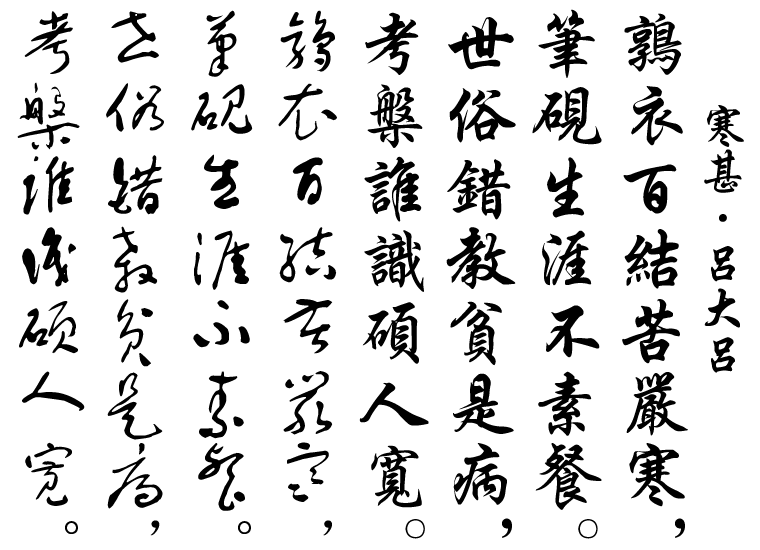 寒甚・呂大呂
鶉衣百結苦嚴寒，
筆硯生涯不素餐。
世俗錯教貧是病，
考槃誰識碩人寬。
鶉衣百結苦嚴寒，
筆硯生涯不素餐。
世俗錯教貧是病，
考槃誰識碩人寬。